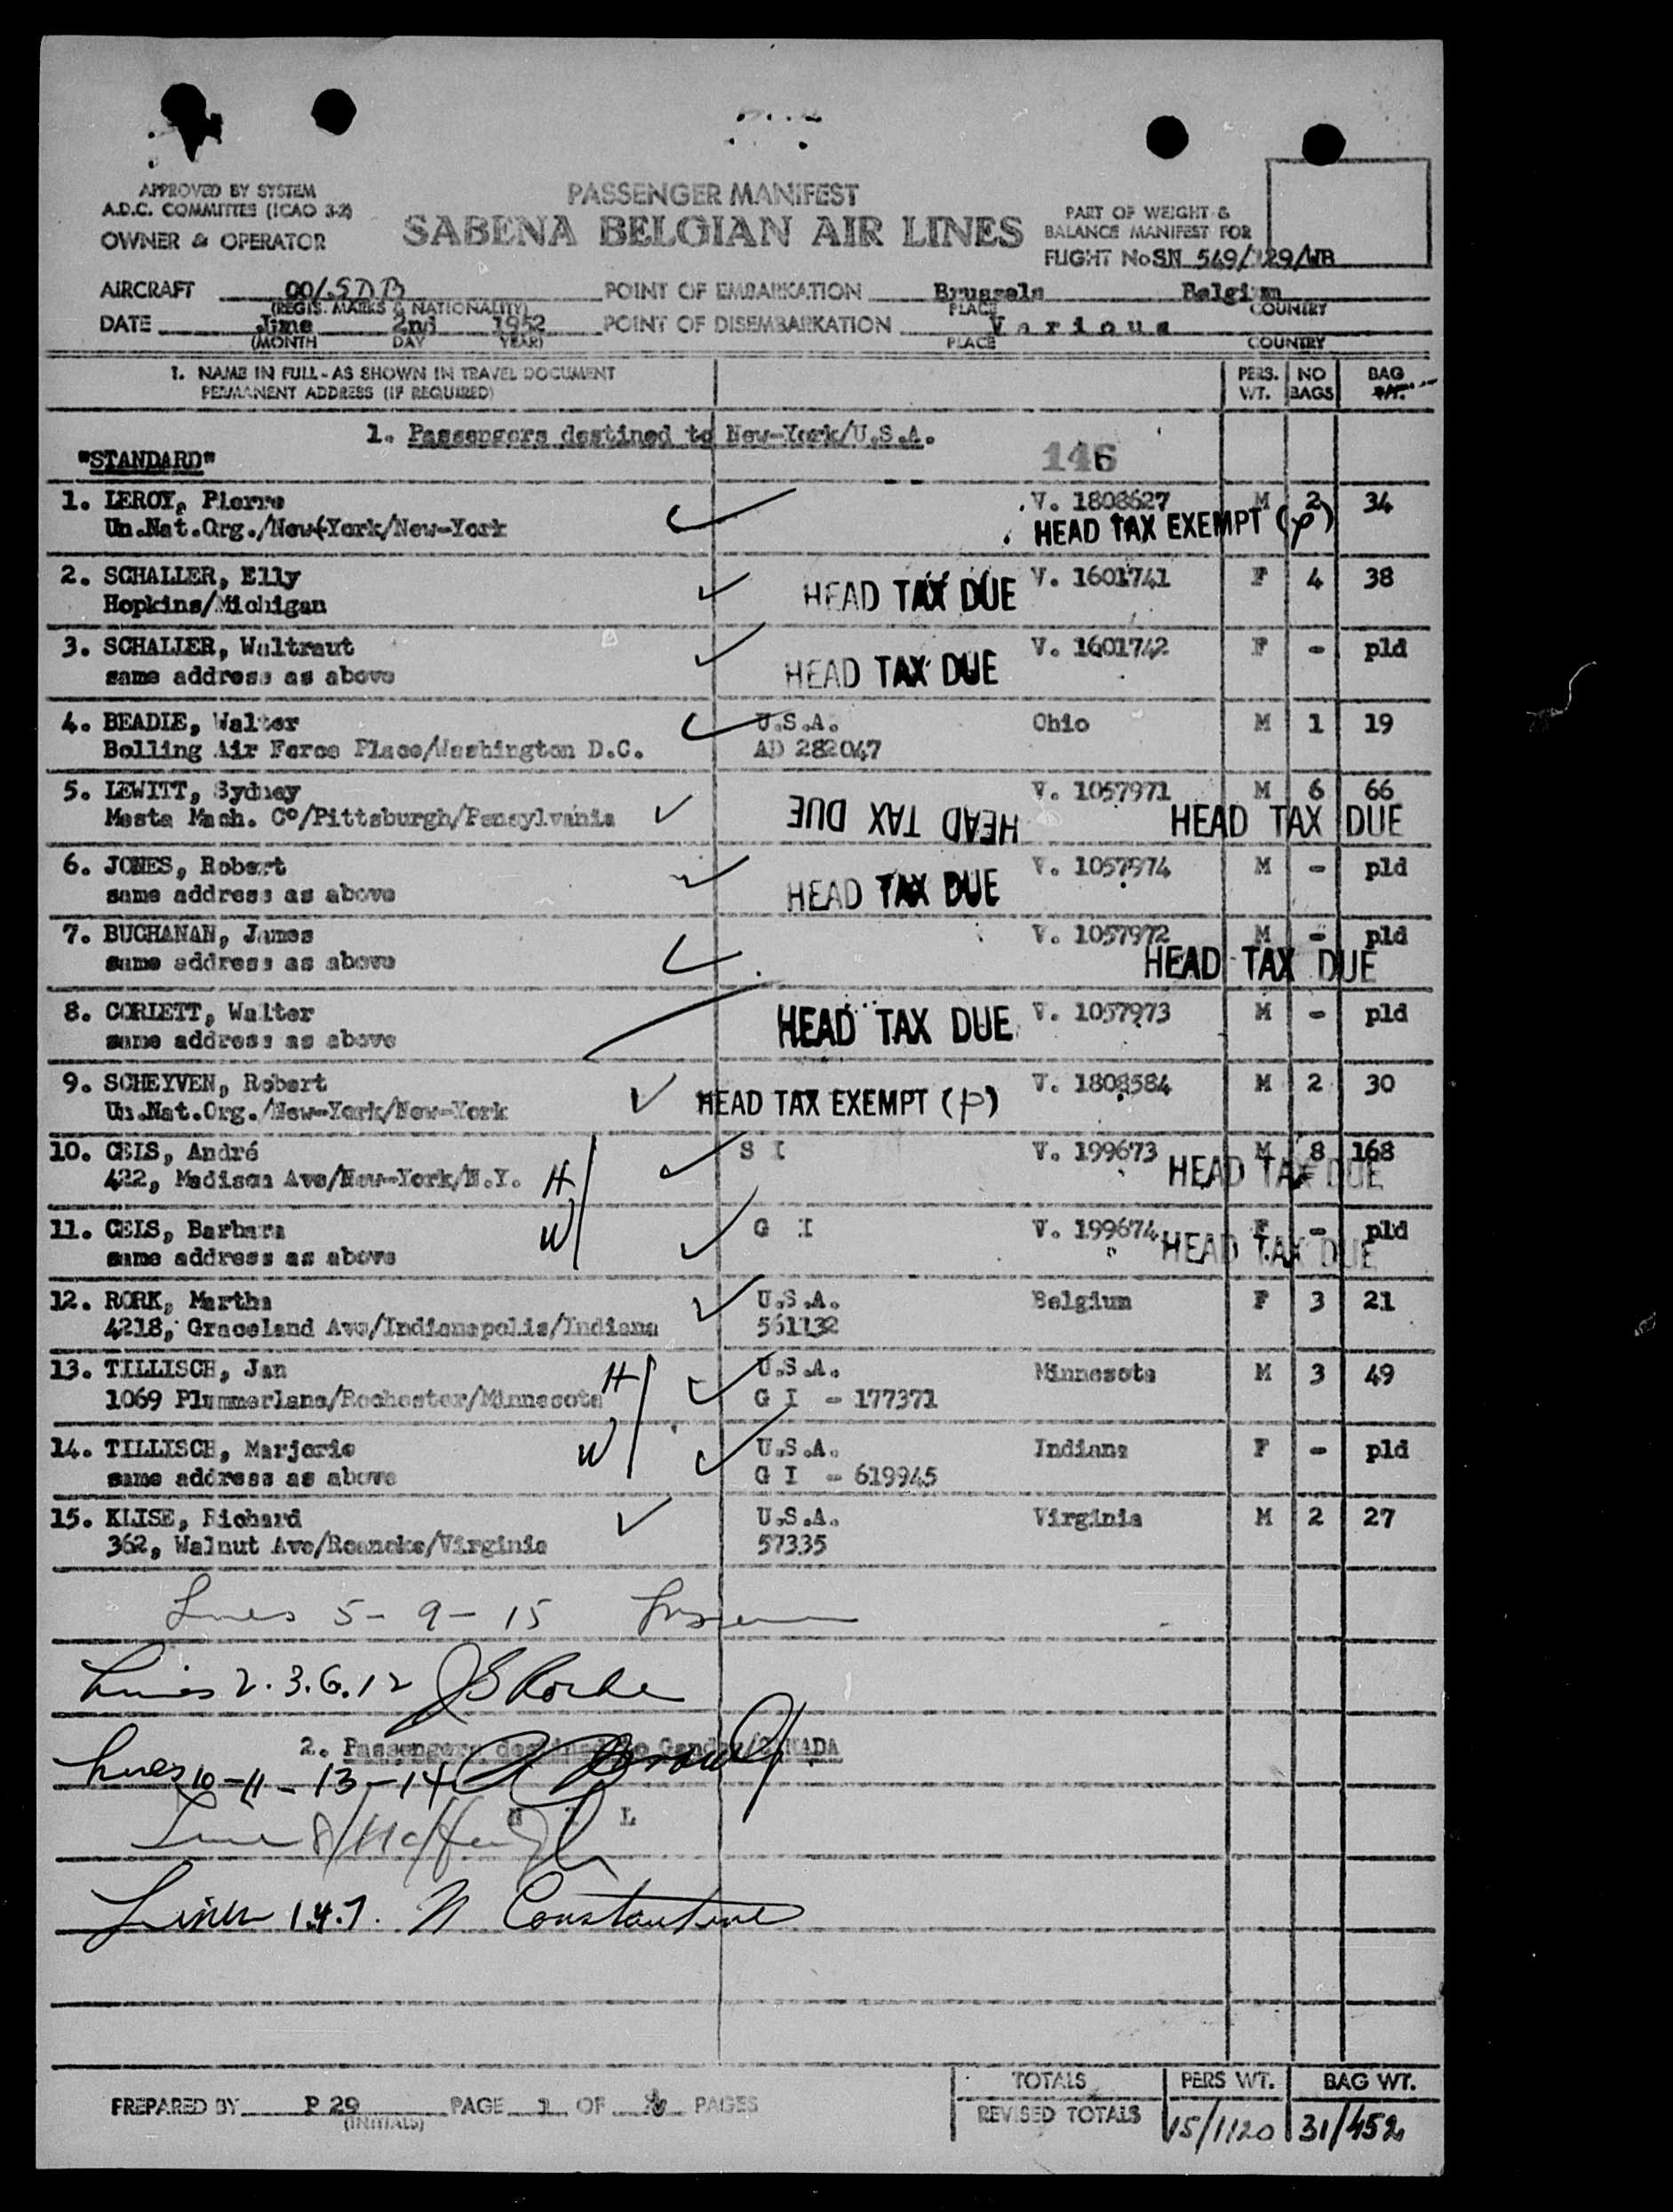 APPROVED BY SYSTEM
A.D.C. COMMITTEE (ICAO 3-2)
OWNER & OPERATOR
PASSENGER MANIFEST
SABENA BELGIAN AIR LINES
PART OF WEIGHT &
BALANCE MANIFEST FOR
FLIGHT No SN 549/129/WB
AIRCRAFT OO/.SDB POINT OF EMBARKATION Brussels Belgium
(REGIS. MARKS & NATIONALITY) PLACE COUNTRY
DATE June 2nd 1952 POINT OF DISEMBARKATION Various
(MONTH DAY YEAR) PLACE COUNTRY
1. NAME IN FULL - AS SHOWN IN TRAVEL DOCUMENT PERS. NO BAG
PERMANENT ADDRESS (IF REQUIRED) WT. BAGS WT.
1. Passengers destined to New-York/U.S.A.
"STANDARD" 146
1. LEROY, Pierre V. 1808627 M 2 34
Un.Nat.Org./New-York/New-York HEAD TAX EXEMPT (p)
2. SCHALLER, Elly HEAD TAX DUE V. 1601741 F 4 38
Hopkins/Michigan
3. SCHALLER, Waltraut V. 1601742 F - pld
same address as above HEAD TAX DUE
4. BEADIE, Walter U.S.A. Ohio M 1 19
Bolling Air Force Place/Washington D.C. AD 282047
5. LEWITT, Sydney V. 1057971 M 6 66
Mesta Mach. Co/Pittsburgh/Pensylvania HEAD TAX DUE HEAD TAX DUE
6. JONES, Robert V. 1057974 M - pld
same address as above HEAD TAX DUE
7. BUCHANAN, James V. 1057972 M - pld
same address as above HEAD TAX DUE
8. CORLETT, Walter HEAD TAX DUE V. 1057973 M - pld
same address as above
9. SCHEYVEN, Robert V. 1808584 M 2 30
Un.Nat.Org./New-York/New-York HEAD TAX EXEMPT (p)
10. CEIS, André S I V. 199673 M 8 168
422, Madison Ave/New-York/N.Y. H HEAD TAX DUE
11. CEIS, Barbara W G I V. 199674 F - pld
same address as above HEAD TAX DUE
12. RORK, Martha U.S.A. Belgium F 3 21
4218, Graceland Ave/Indianapolis/Indiana 561132
13. TILLISCH, Jan H U.S.A. Minnesota M 3 49
1069 Plummerlane/Rochester/Minnesota G I - 177371
14. TILLISCH, Marjorie W U.S.A. Indiana F - pld
same address as above G I - 619945
15. KLISE, Richard U.S.A. Virginia M 2 27
362, Walnut Ave/Roanoke/Virginia 57335
Lines 5-9-15
Lines 2.3.6.12 J S Roche
2. Passengers destined to Gander/CANADA
Lines 10-11-13-14
N I L
Line 8
Lines 1.4.7. N Constantine
TOTALS PERS WT. BAG WT.
PREPARED BY P 29 PAGE 1 OF PAGES
(INITIALS)
REVISED TOTALS 15/1120 31/452